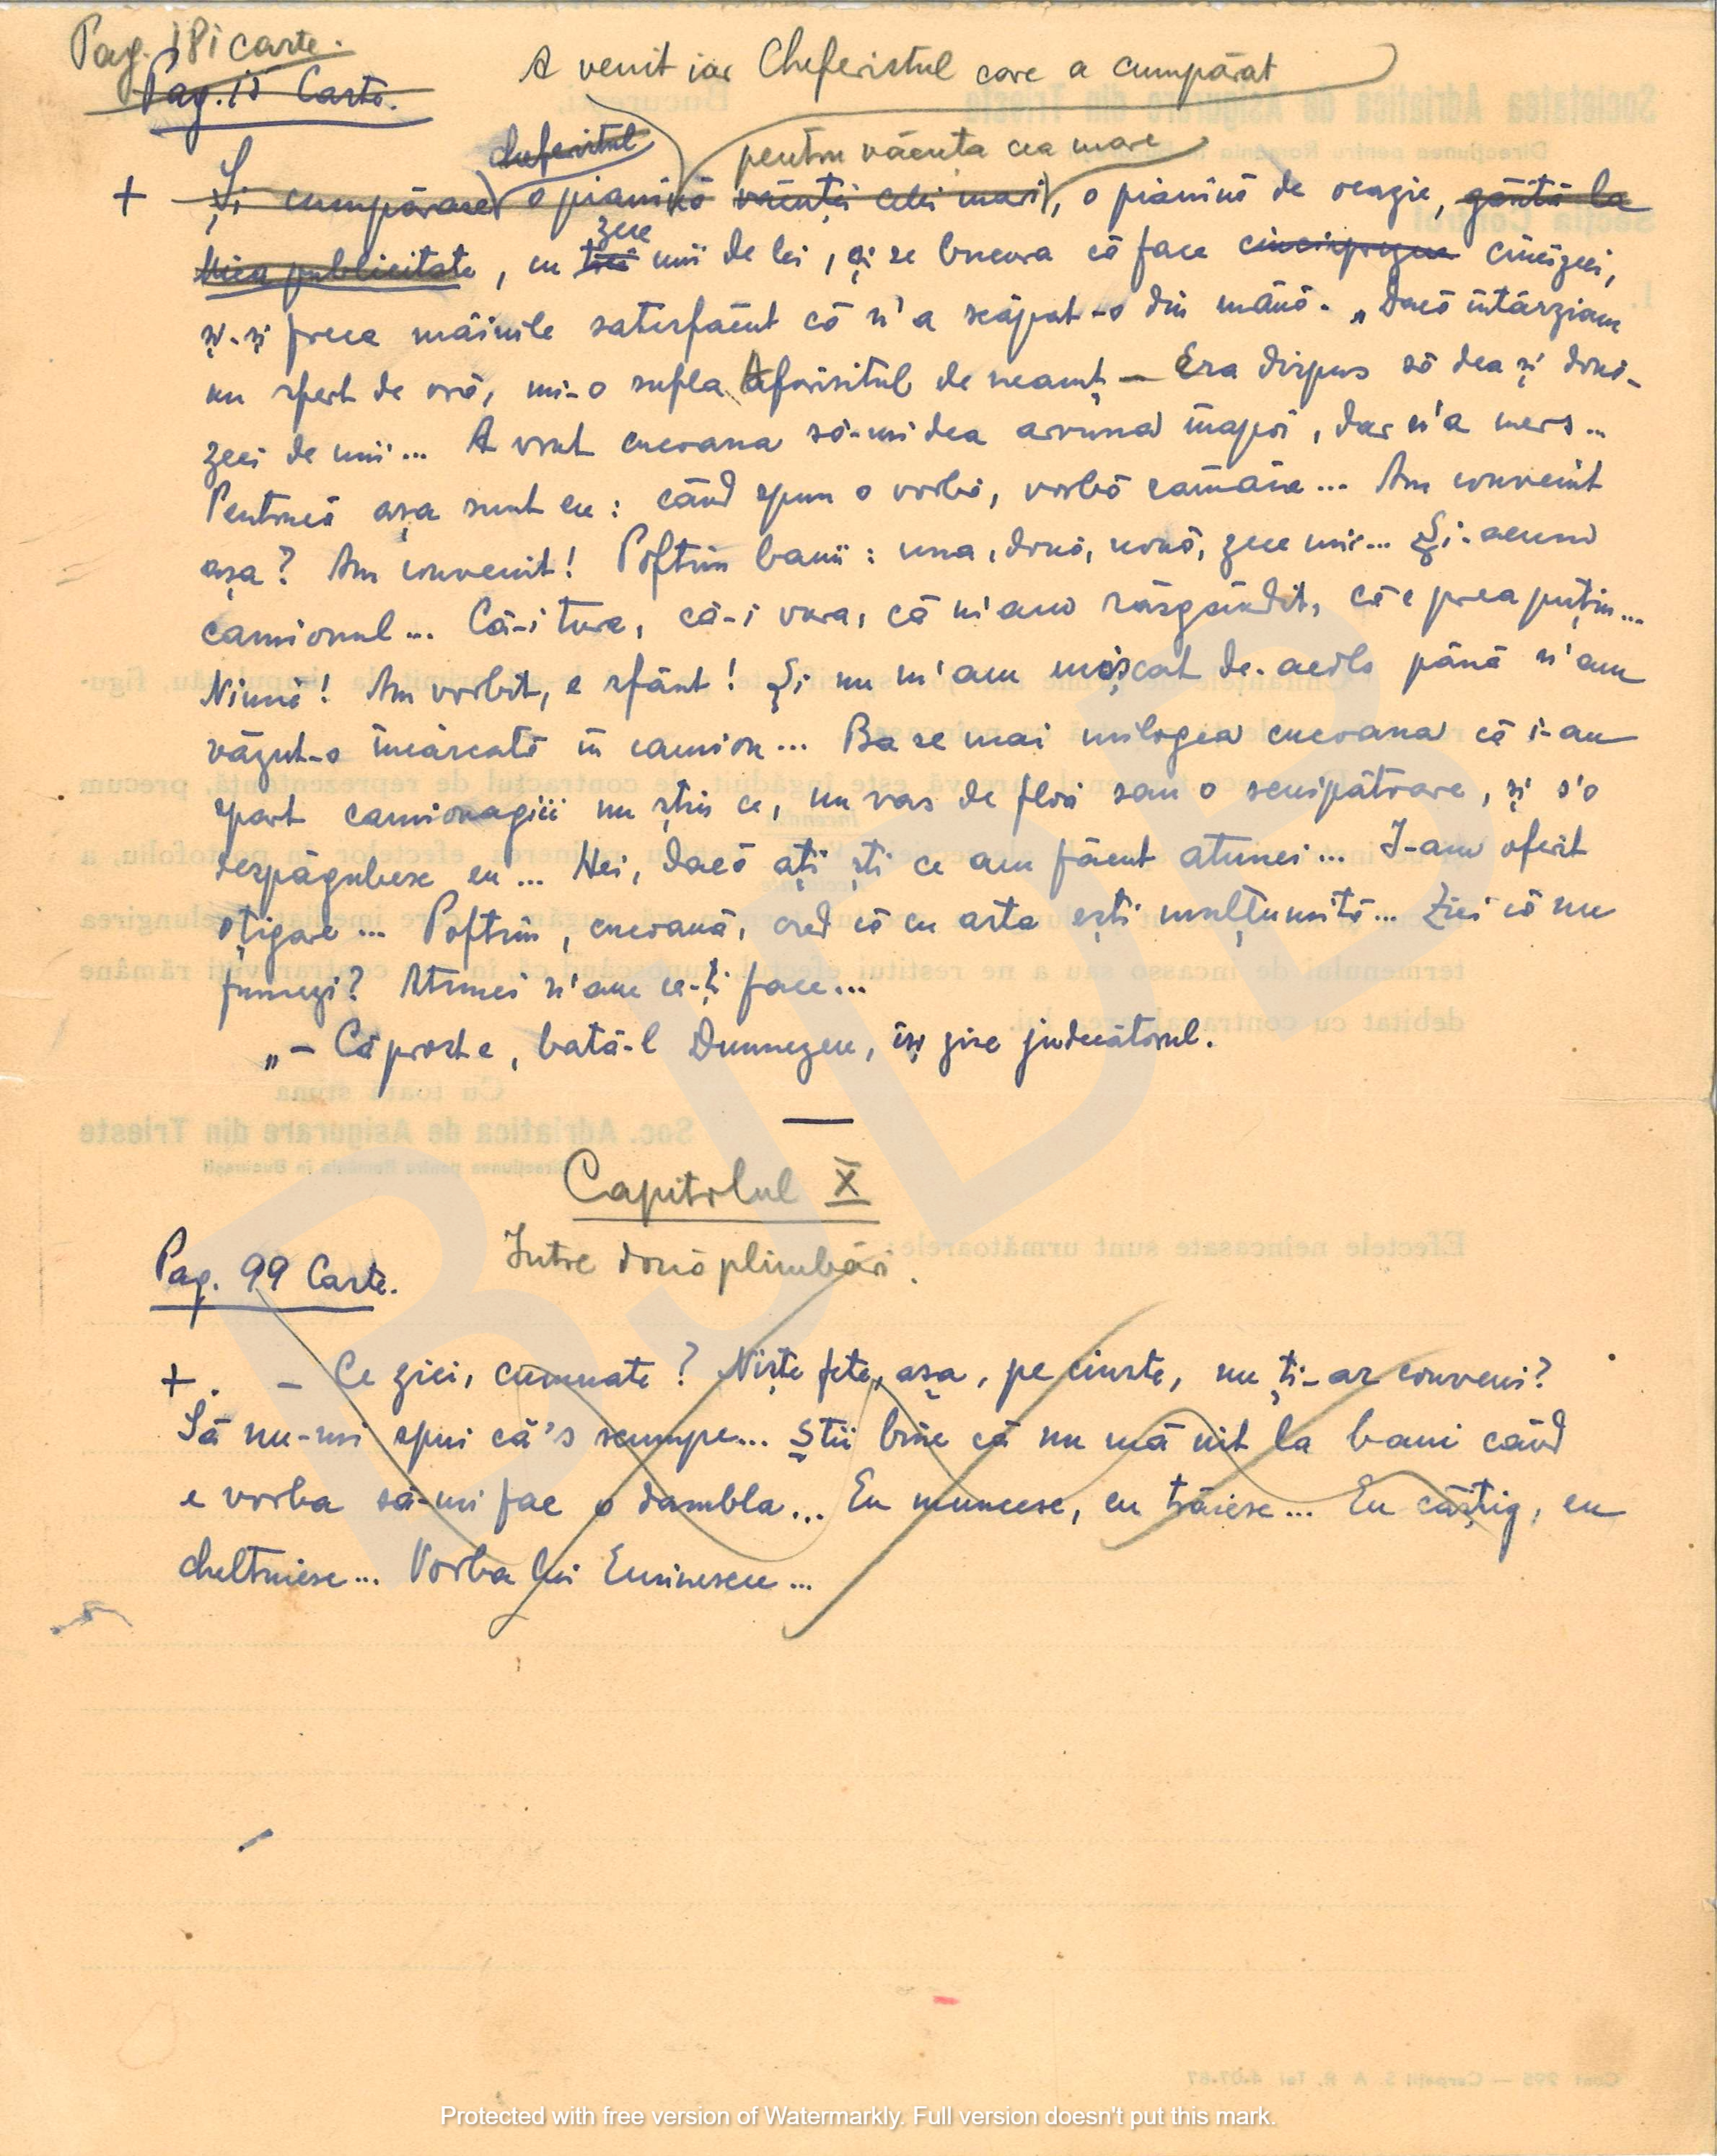 Pag. 181 carte.
Pag. 15 Carte.
A venit iar Cheferistul care a cumpărat
cheferistul
pentru văcuța cea mare
+ Și cumpărase o pianină văcuței celei mari, o pianină de ocazie, găsită la
Mica publicitate, cu trei zece mii de lei, și se bucura că face cincisprezece cincizeci,
și-și freca mâinile satisfăcut că n'a scăpat-o din mână. „Dacă întârziam
un sfert de oră, mi-o sufla Afurisitul de neamț — Era dispus să dea și două-
zeci de mii... A vrut cucoana să-mi dea arvuna înapoi, dar n'a mers...
Pentrucă așa sunt eu: când spun o vorbă, vorbă rămâne... Am convenit
așa? Am convenit! Poftim banii: una, două, nouă, zece mii... Și-acum
camionul... Că-i tura, că-i vura, că m'am răsgândit, că e prea puțin...
Nimic! Am vorbit, e sfânt! Și nu m'am mișcat de-acolo până n'am
văzut-o încărcată în camion... Ba se mai milogea cucoana că i-au
spart camionagiii nu știu ce, un vas de flori sau o scuipătoare, și s'o
despăgubesc eu... Hei, dacă ați ști ce am făcut atunci... I-am oferit
o țigare... Poftim, cucoană, cred că cu asta ești mulțumită... Zici că nu
fumezi? Atunci n'am ce-ți face...
„— Că prost e, bată-l Dumnezeu, își zise judecătorul.
Capitolul X
Intre două plimbări.
Pag. 99 Carte.
+. — Ce zici, cumnate? Niște fete, așa, pe cinste, nu ți-ar conveni?
Să nu-mi spui că's scumpe... Știi bine că nu mă uit la bani când
e vorba să-mi fac o dambla... Eu muncesc, eu trăiesc... Eu câștig, eu
cheltuiesc... Vorba lui Eminescu...
BJDB
Protected with free version of Watermarkly. Full version doesn't put this mark.